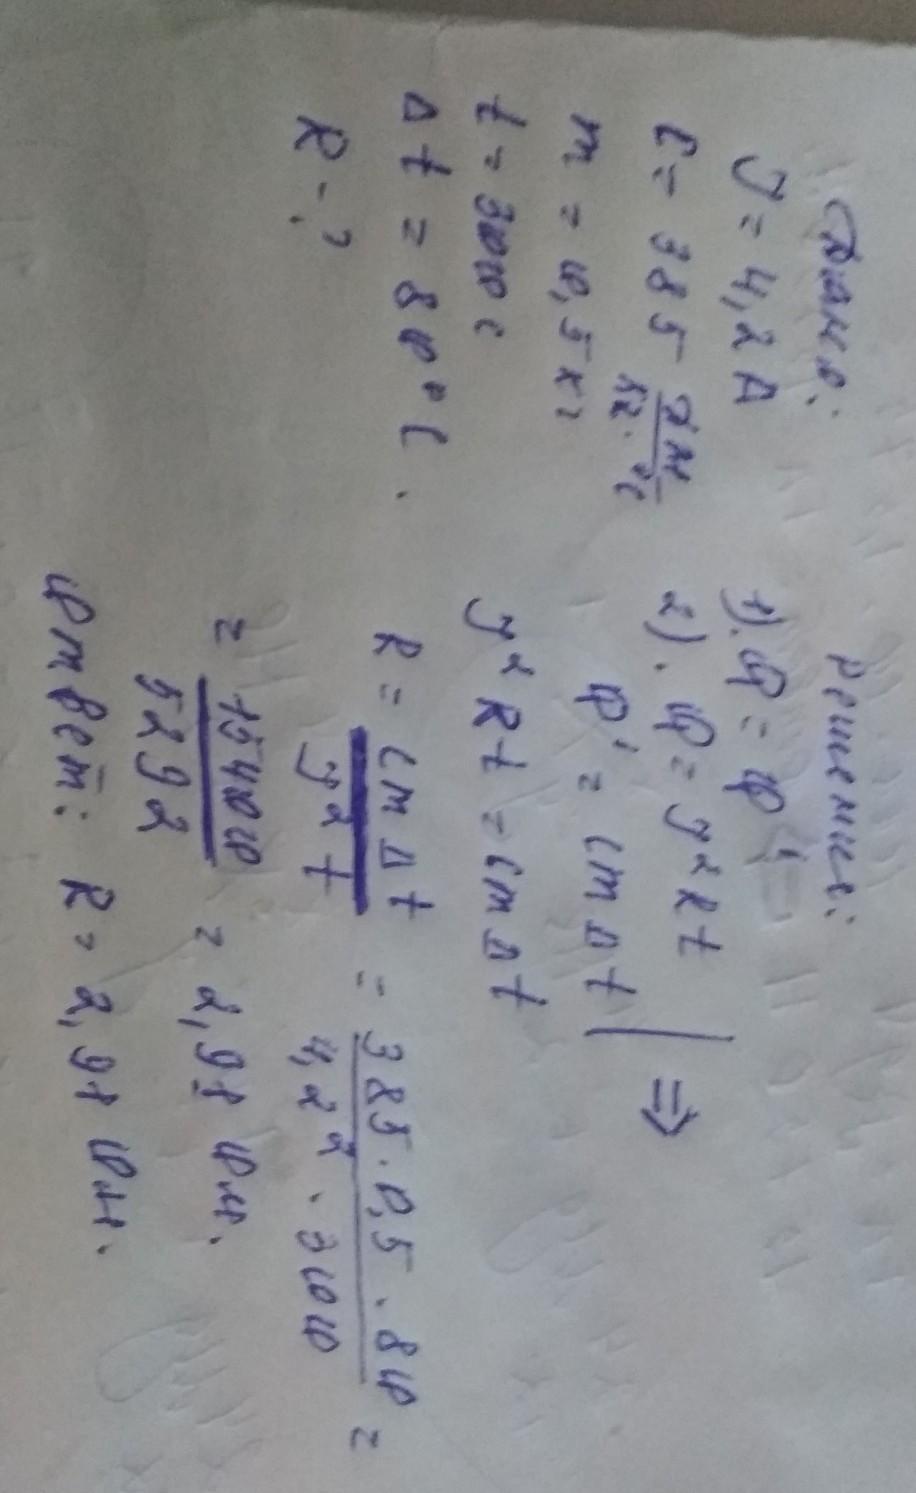 Дано:
J = 4,2 А
C = 385 Дж/кг·°С
m = 0,5 кг
t = 300 с
Δt = 80°С.
R - ?
Решение:
1). Q = Q'
2). Q = J²Rt
Q' = cmΔt | ⇒
J²Rt = cmΔt
R = cmΔt/J²t = 385·0,5·80/4,2²·300 =
= 15400/5292 = 2,91 Ом.
Ответ: R = 2,91 Ом.